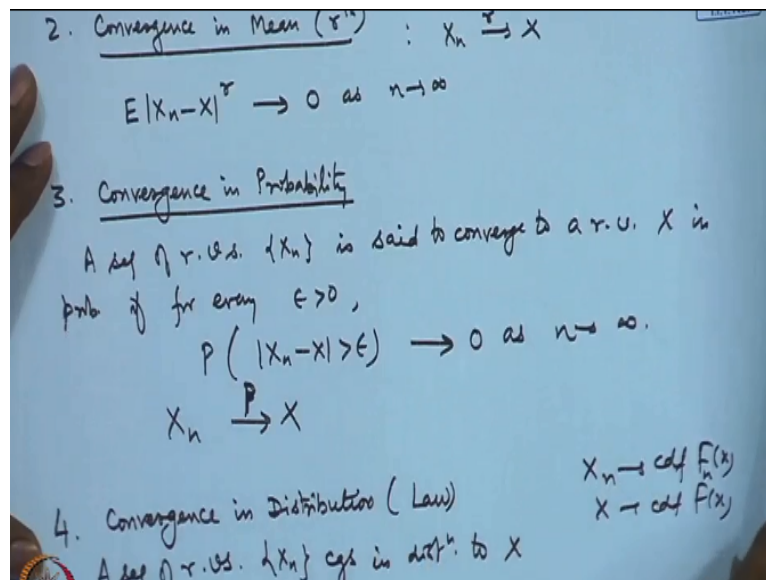 2. Convergence in Mean (rᵗʰ) : Xₙ →ʳ X
E |Xₙ-X|ʳ → 0 as n→∞
3. Convergence in Probability
A seq of r.v.s. {Xₙ} is said to converge to a r.v. X in
prob if for every ϵ >0,
P( |Xₙ-X| >ϵ) → 0 as n→ ∞.
Xₙ →ᴾ X
Xₙ → cdf Fₙ(x)
X → cdf F(x)
4. Convergence in Distribution (Law)
A seq of r.vs. {Xₙ} cgs in distⁿ. to X